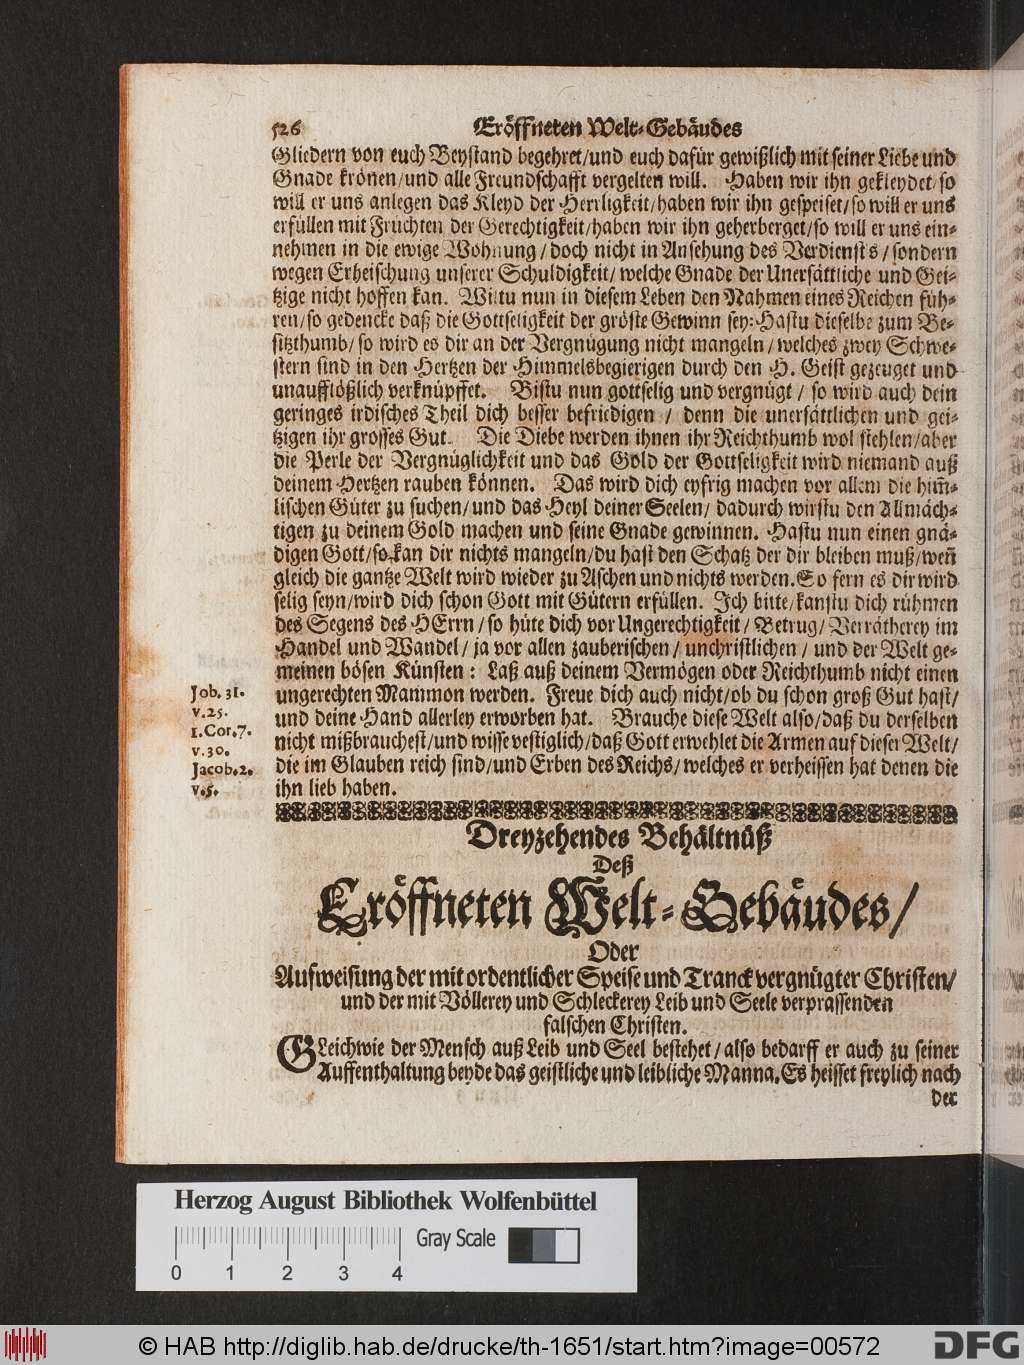 526 Eröffneten Welt-Gebäudes
Gliedern von euch Beystand begehret/und euch dafür gewißlich mit seiner Liebe und
Gnade krönen/und alle Freundschafft vergelten will. Haben wir ihn gekleydet/so
will er uns anlegen das Kleyd der Herrligkeit/haben wir ihn gespeiset/so will er uns
erfüllen mit Früchten der Gerechtigkeit/haben wir ihn geherberget/so will er uns ein-
nehmen in die ewige Wohnung/doch nicht in Ansehung des Verdiensts/sondern
wegen Erheischung unserer Schuldigkeit/welche Gnade der Unersättliche und Gei-
tzige nicht hoffen kan. Wiltu nun in diesem Leben den Nahmen eines Reichen füh-
ren/so gedencke daß die Gottseligkeit der gröste Gewinn sey: Hastu dieselbe zum Be-
sitzthumb/so wird es dir an der Vergnügung nicht mangeln/welches zwey Schwe-
stern sind in den Hertzen der Himmelsbegierigen durch den H. Geist gezeuget und
unaufflößlich verknüpffet. Bistu nun gottselig und vergnügt/so wird auch dein
geringes irdisches Theil dich besser befriedigen/denn die unersättlichen und gei-
tzigen ihr grosses Gut. Die Diebe werden ihnen ihr Reichthumb wol stehlen/aber
die Perle der Vergnüglichkeit und das Gold der Gottseligkeit wird niemand auß
deinem Hertzen rauben können. Das wird dich eyfrig machen vor allem die him̃-
lischen Güter zu suchen/und das Heyl deiner Seelen/dadurch wirstu den Allmäch-
tigen zu deinem Gold machen und seine Gnade gewinnen. Hastu nun einen gnä-
digen Gott/so kan dir nichts mangeln/du hast den Schatz der dir bleiben muß/weñ
gleich die gantze Welt wird wieder zu Aschen und nichts werden. So fern es dir wird
selig seyn/wird dich schon Gott mit Gütern erfüllen. Ich bitte/kanstu dich rühmen
des Segens des HErrn/so hüte dich vor Ungerechtigkeit/Betrug/Verrätherey im
Handel und Wandel/ja vor allen zauberischen/unchristlichen/und der Welt ge-
meinen bösen Künsten: Laß auß deinem Vermögen oder Reichthumb nicht einen
ungerechten Mammon werden. Freue dich auch nicht/ob du schon groß Gut hast/
und deine Hand allerley erworben hat. Brauche diese Welt also/daß du derselben
nicht mißbrauchest/und wisse vestiglich/daß Gott erwehlet die Armen auf dieser Welt/
die im Glauben reich sind/und Erben des Reichs/welches er verheissen hat denen die
ihn lieb haben.
Job. 31.
v. 25.
1. Cor. 7.
v. 30.
Jacob. 2.
v. 5.
Dreyzehendes Behältnüß
Deß
Eröffneten Welt-Gebäudes/
Oder
Aufweisung der mit ordentlicher Speise und Tranck vergnügter Christen/
und der mit Völlerey und Schleckerey Leib und Seele verprassenden
falschen Christen.
GLeichwie der Mensch auß Leib und Seel bestehet/also bedarff er auch zu seiner
Auffenthaltung beyde das geistliche und leibliche Manna. Es heisset freylich nach
der
Herzog August Bibliothek Wolfenbüttel
Gray Scale
0 1 2 3 4
© HAB http://diglib.hab.de/drucke/th-1651/start.htm?image=00572
DFG